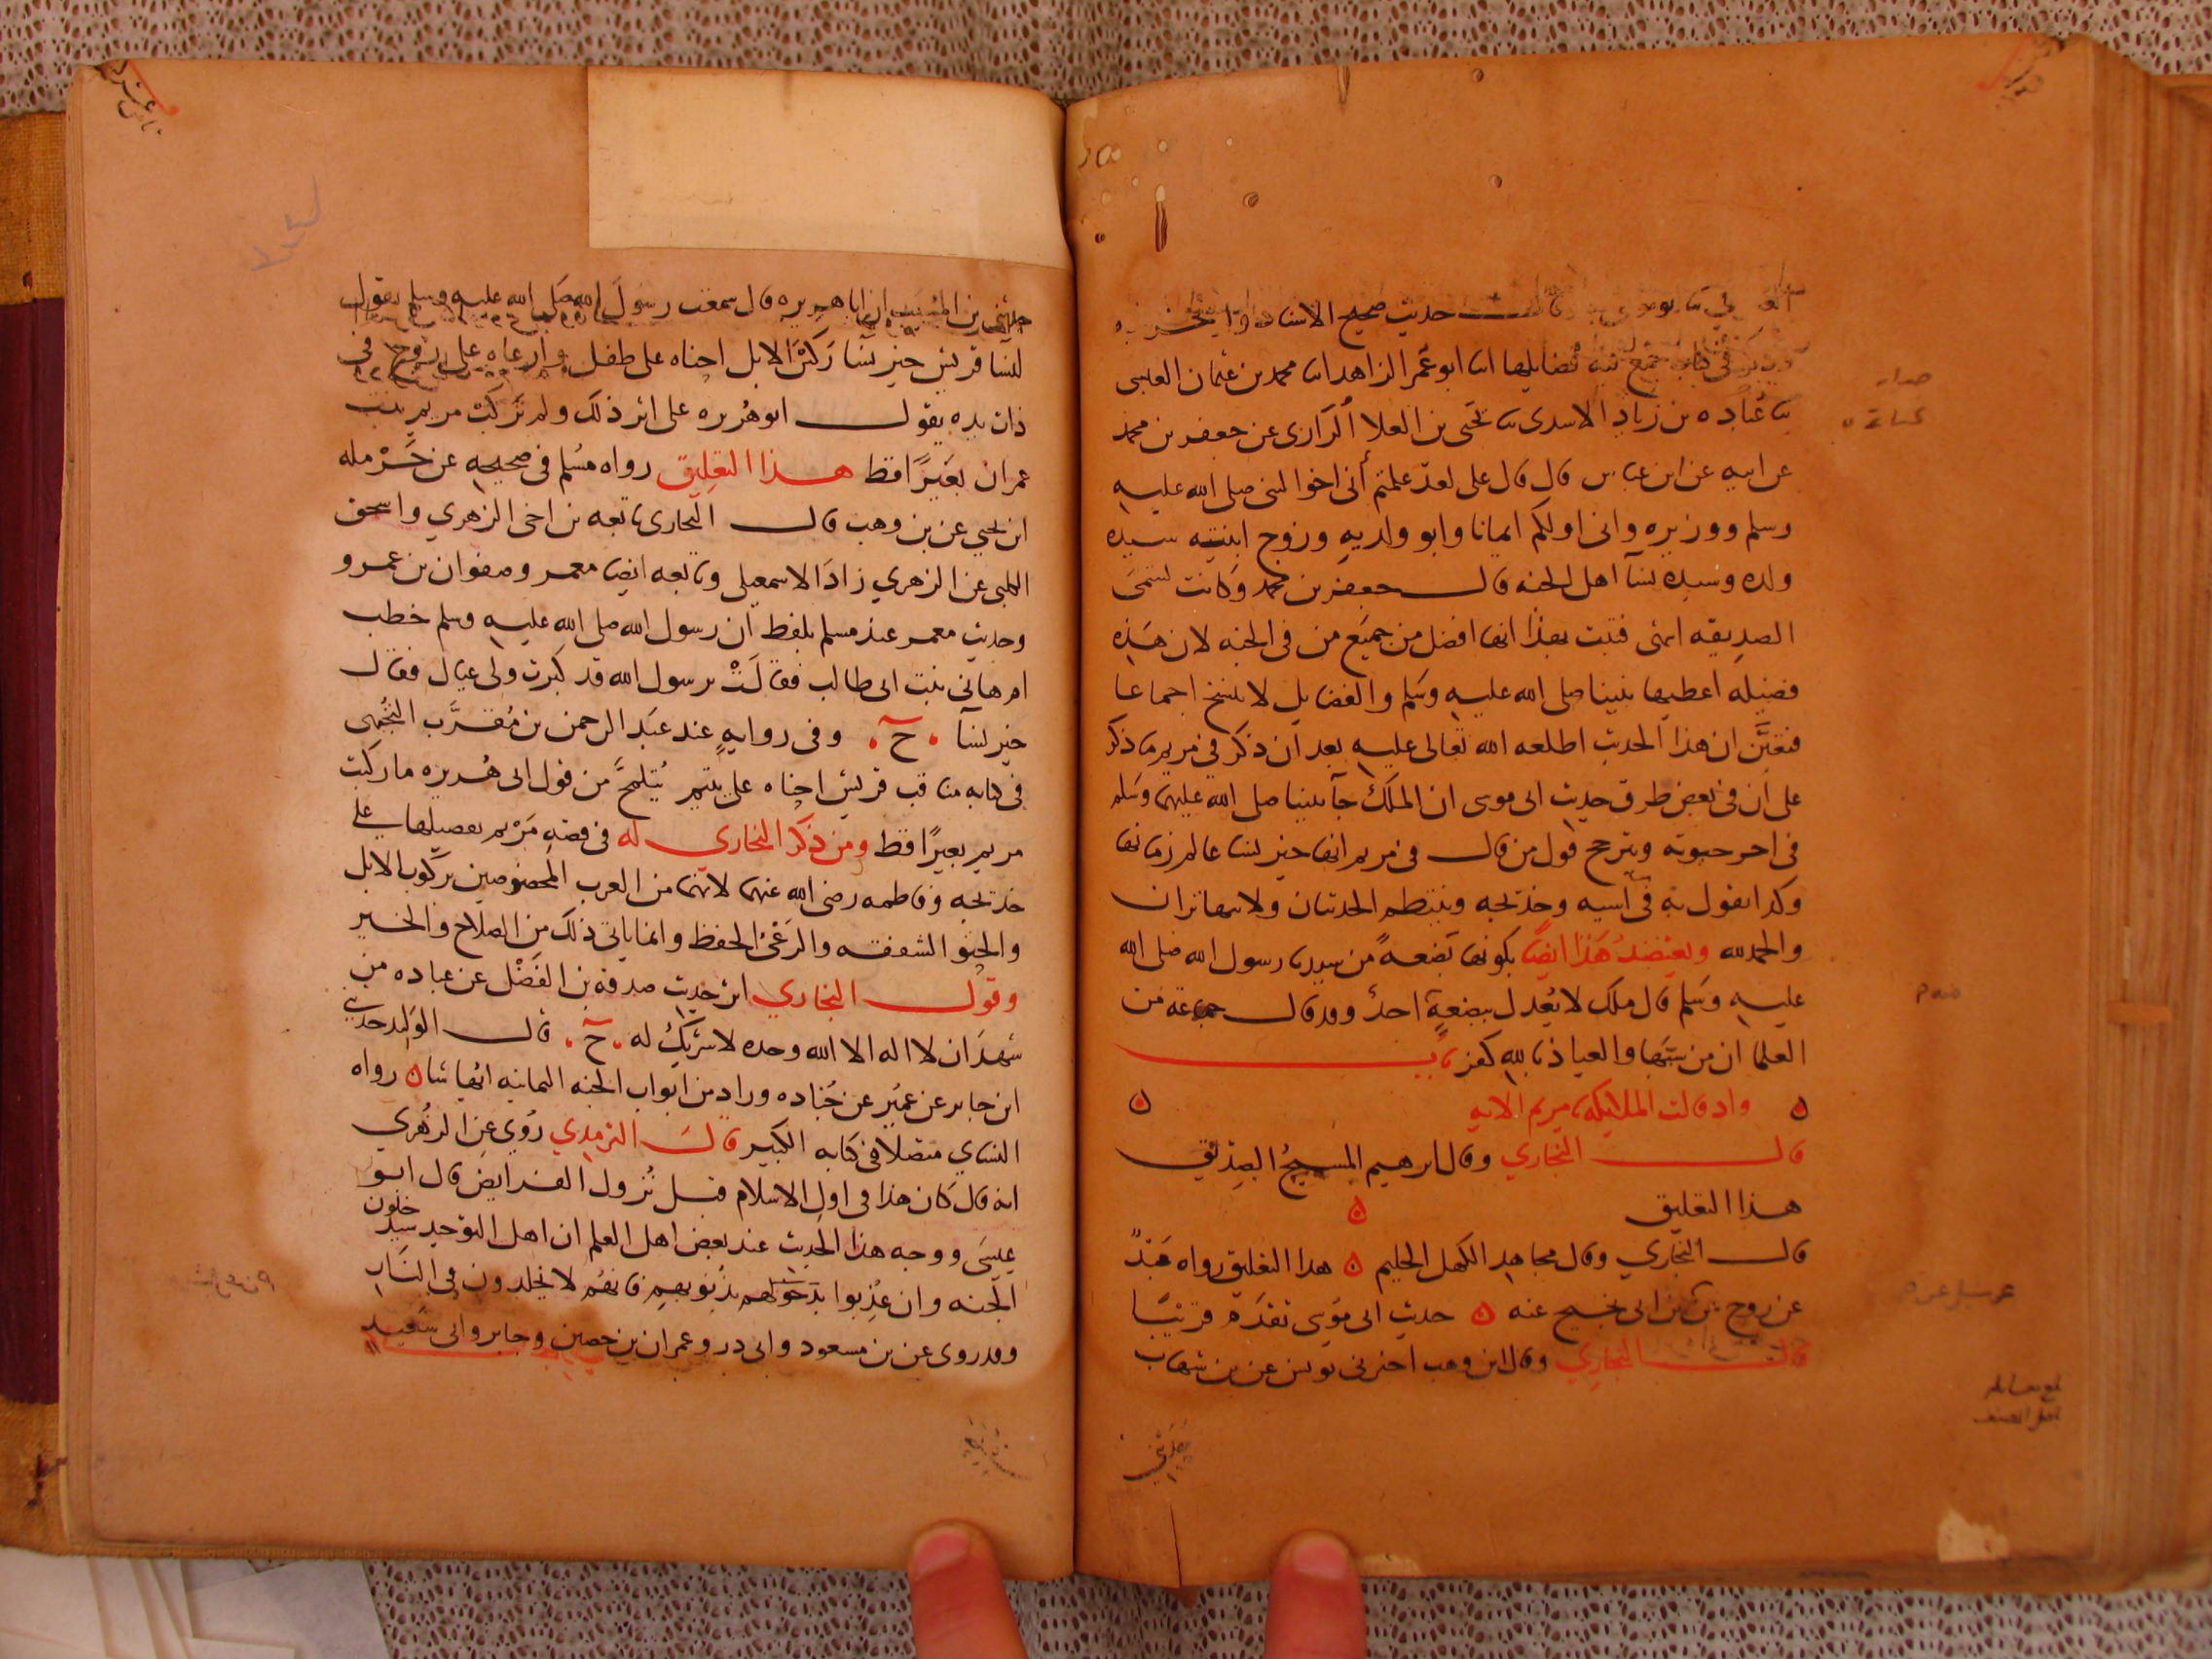 حديث صحيح الاسناد ولم يخرجه
في كتاب جمع فيه فضايلها ابو عمر الزاهد محمد بن عثمان العبسي
عباده بن زياد الاسدي يحيى بن العلا الرازي عن جعفر بن محمد
عن ابيه عن ابن عباس قال قال على لعد علمتم أني اخوا النبي صلى الله عليه
وسلم ووزيره واني اولكم ايمانا وابو ولديه وزوج ابنتيه سيده
ولده وسيده نسآ اهل الجنه قال جعفر بن محمد وكانت تسمى
الصديقه انتهى فثبت بهذا انها افضل من جميع من في الجنه لان هذه
فضيله اعطيها نبينا صلى الله عليه وسلم والفضايل لا تنسخ اجماعا
فتعين ان هذا الحديث اطلعه الله تعالى عليه بعد ان ذكر في مريم ما ذكر
على ان في بعض طرق حديث ابي موسى ان الملك جآ نبينا صلى الله عليهما وسلم
في اخر حيوته ويترجح قول من قال في مريم انها خير نسا عالم زمانها
وكذا نقول به في آسيه وخديجه وينتظم الحديثان ولا يتهاتران
والحمد لله ويعتضد هذا ايضا بكونها بضعة من سيدنا رسول الله صلى الله
عليه وسلم قال ملك لا يعدل ببضعة احد وقد قال جماعة من
العلما ان من سبها والعياذ بالله كفر باب
واد قالت الملايكه يا مريم الايه
قال البخاري وقال ابرهيم المسيح الصديق
هذا التعليق
قال البخاري وقال مجاهد الكهل الحليم هدا التعليق رواه عبد
عن روح عن ابن ابي نجيح عنه حديث ابي موسى تقدم قريبا
قال البخاري وقال ابن وهب اخبرني يونس عن بن شهاب
حدثني
حدثني بن المسيب ان ابا هريره قال سمعت رسول الله صلى الله عليه وسلم يقول
نسا قريش خير نسا ركبن الابل احناه على طفل وارعاه على زوج في
ذات يده يقول ابو هريره على اثر ذلك ولم تركب مريم بنت
عمران بعيرا قط هذا التعليق رواه مسلم في صحيحه عن حرمله
ابن يحيى عن بن وهب قال البخاري تابعه بن اخي الزهري واسحق
الكلبي عن الزهري زاد الاسمعيلي وتابعه ايضا معمر وصفوان بن عمرو
وحديث معمر عند مسلم بلفظ ان رسول الله صلى الله عليه وسلم خطب
ام هاني بنت ابي طالب فقالت يرسول الله قد كبرت ولي عيال فقال
خير نسآ . ح . وفي رواية عند عبد الرحمن بن مقرب التجيبي
في كتابه مناقب قريش احناه على يتيم يتلمح من قول ابي هريره ما ركبت
مريم بعيرا قط ومن ذكر البخاري له في قصة مريم تفضيلها على
خديجه وفاطمه رضي الله عنهما لانهما من العرب المخصوصين بركوب الابل
والحنو الشفقه والرعي الحفظ وانما ياتي ذلك من الصلاح والخير
وقول البخاري اثر حديث صدقه بن الفضل عن عباده من
شهد ان لا اله الا الله وحده لا شريك له . ح . قال الوليد حدثني
ابن جابر عن عمير عن جناده وزاد من ابواب الجنه الثمانيه ايها شا رواه
النساي متصلا في كتابه الكبير قال الترمدي روي عن الزهري
انه قال كان هذا في اول الاسلام قبل نزول الفرايض قال ابو
عيسى ووجه هذا الحديث عند بعض اهل العلم ان اهل التوحيد سيدخلون
الجنه وان عذبوا بذنوبهم فانهم لا يخلدون في النار
وقد روى عن بن مسعود وابي در وعمران بن حصين وجابر وابي سعيد